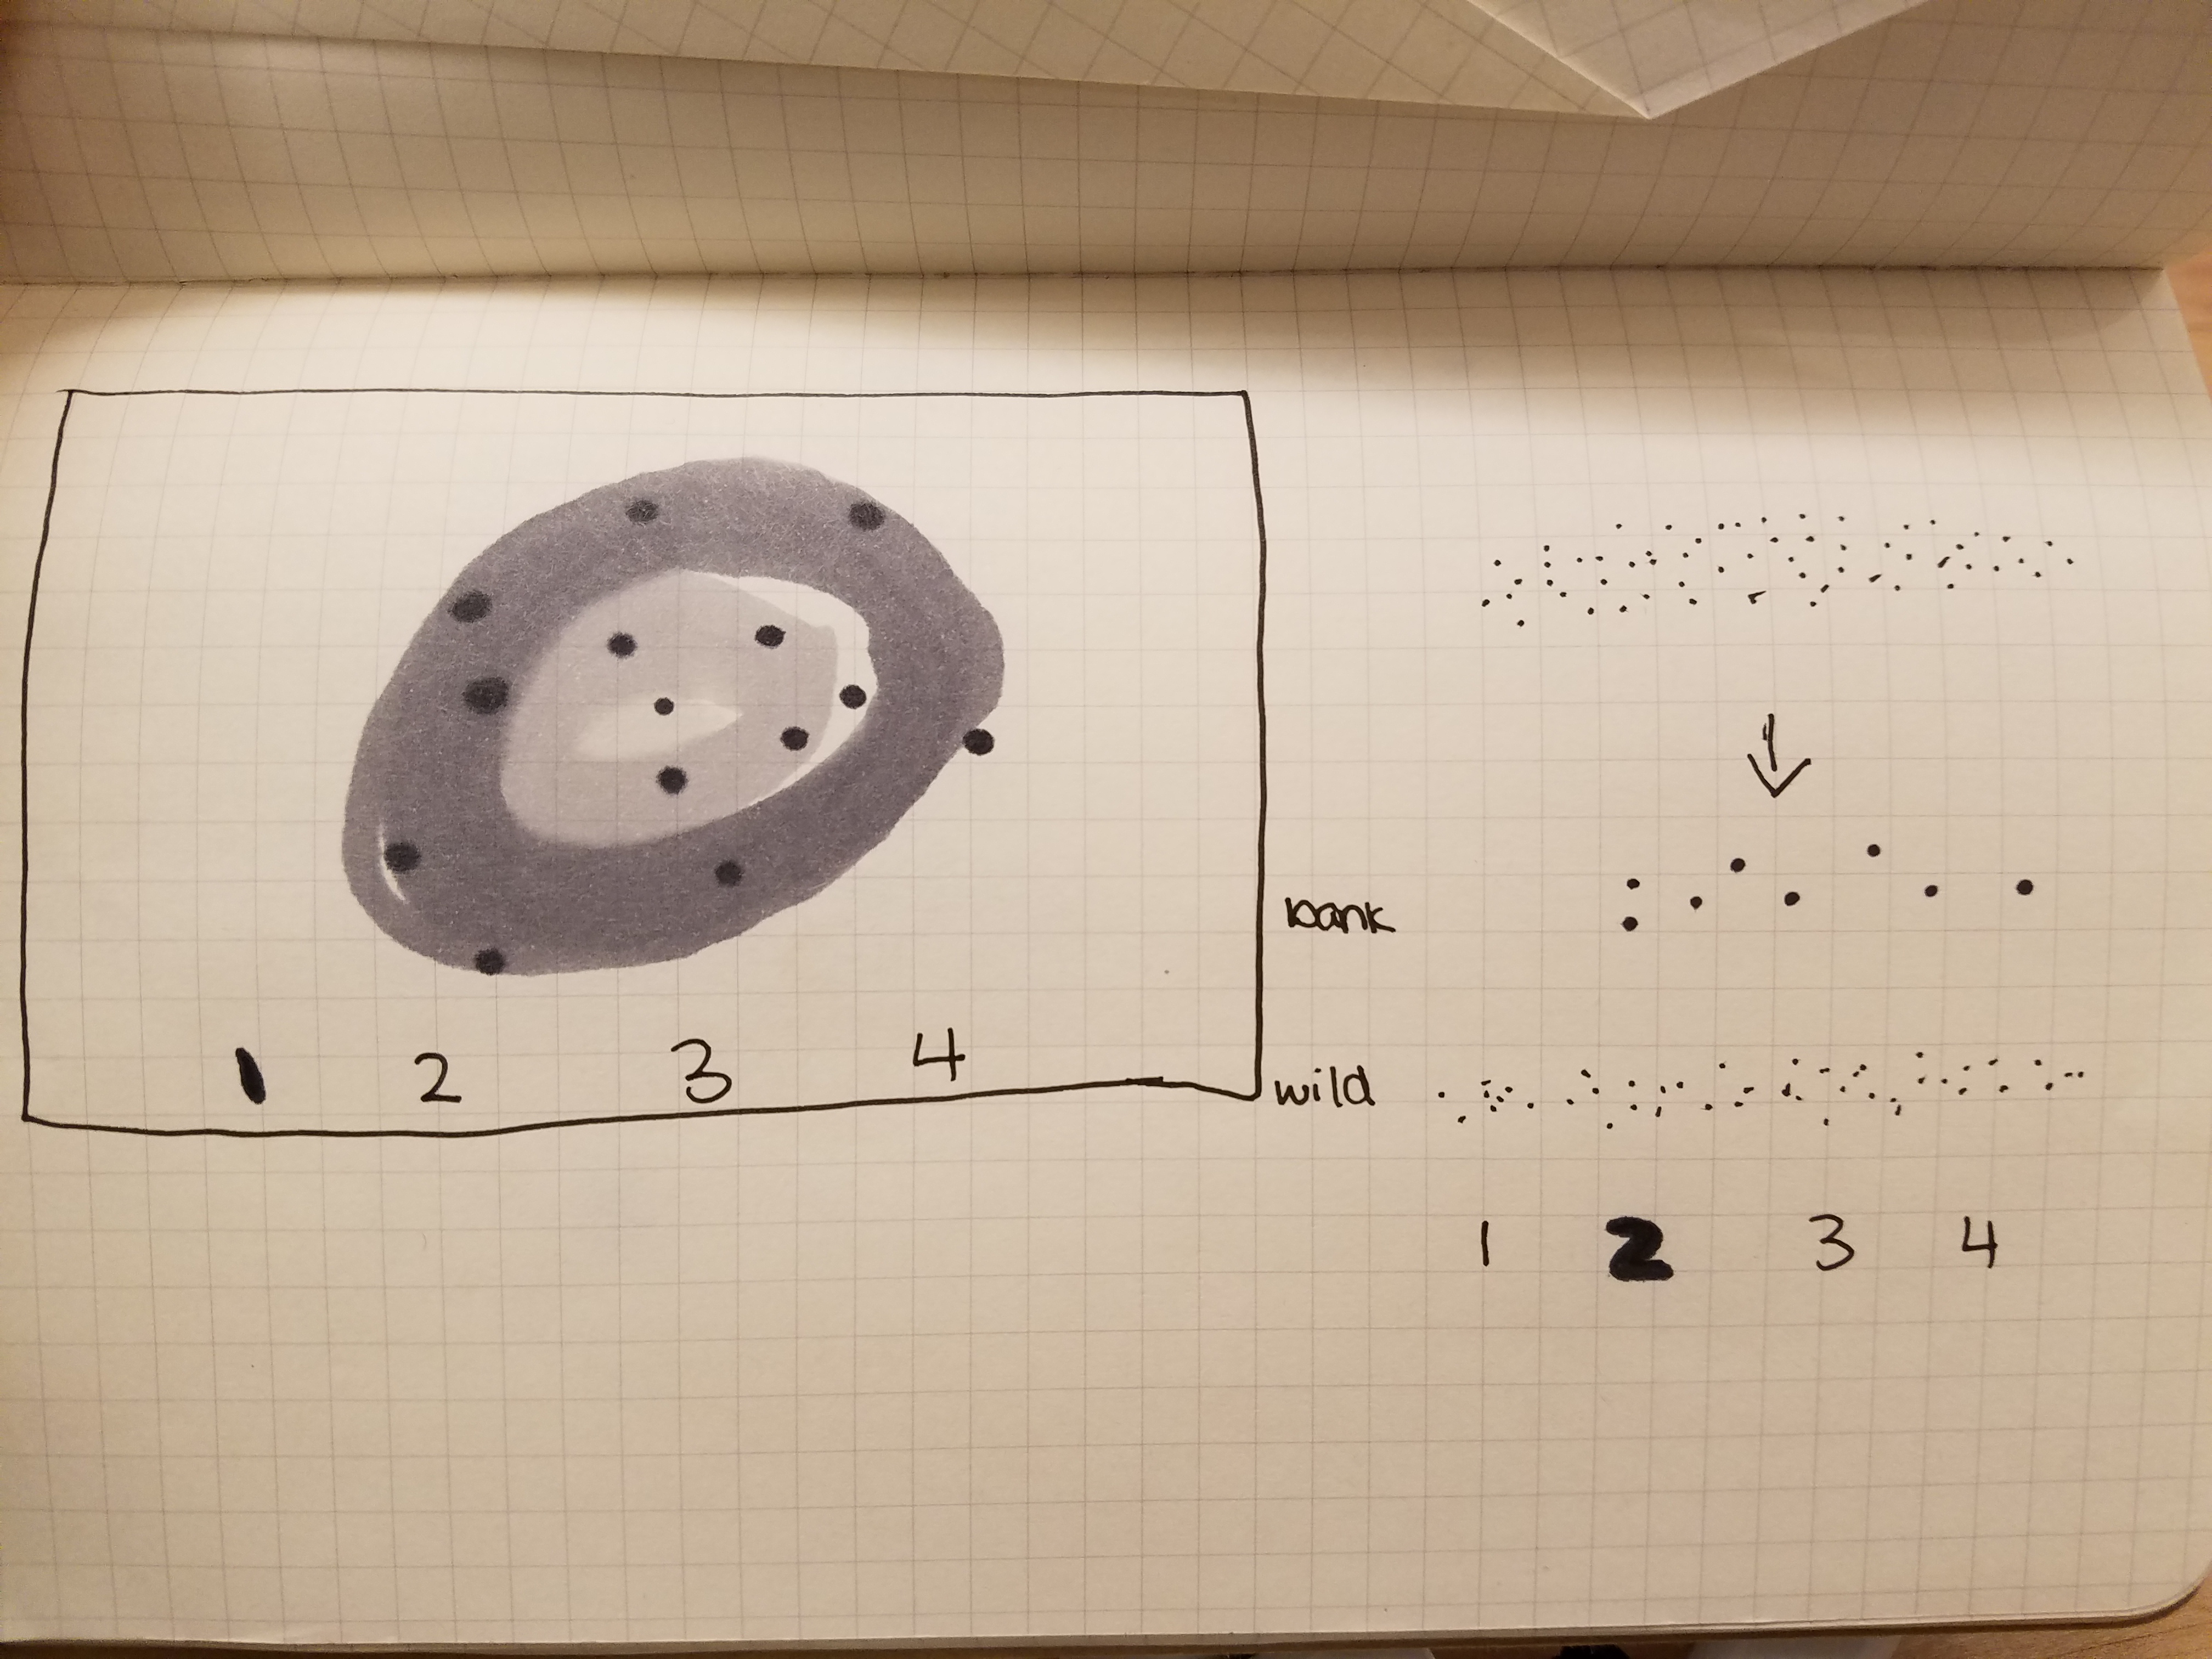 1 2 3 4
bank
wild
1 2 3 4